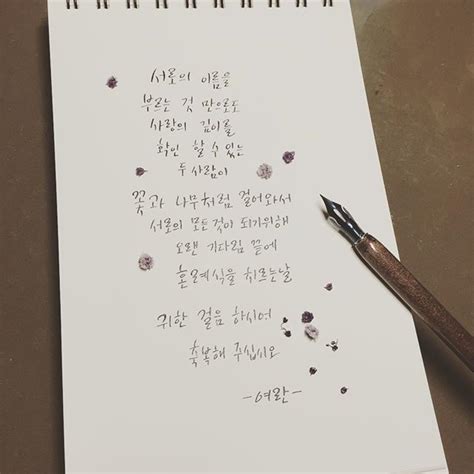 서로의 이름을
부르는 것 만으로도
사랑의 깊이를
확인 할 수 있는
두 사람이
꽃과 나무처럼 걸어와서
서로의 모든것이 되기위해
오랜 기다림 끝에
혼인예식을 치르는날
귀한 걸음 하시어
축복해 주십시오
-여란-